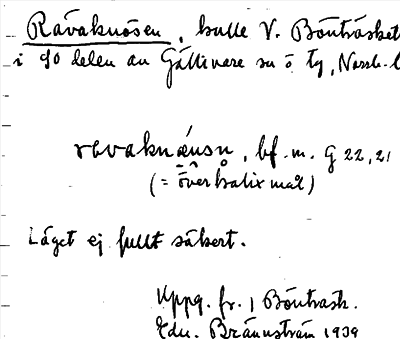 Råvaknösen, kulle V. Bönträsket
i SO delen av Gällivare sn o tg, Norrb. l
revaknæusn, bf. m. G 22, 21
(= överkalixmål)
Läget ej fullt säkert.
Uppg. fr. Bönträsk.
Edv. Brännström 1939